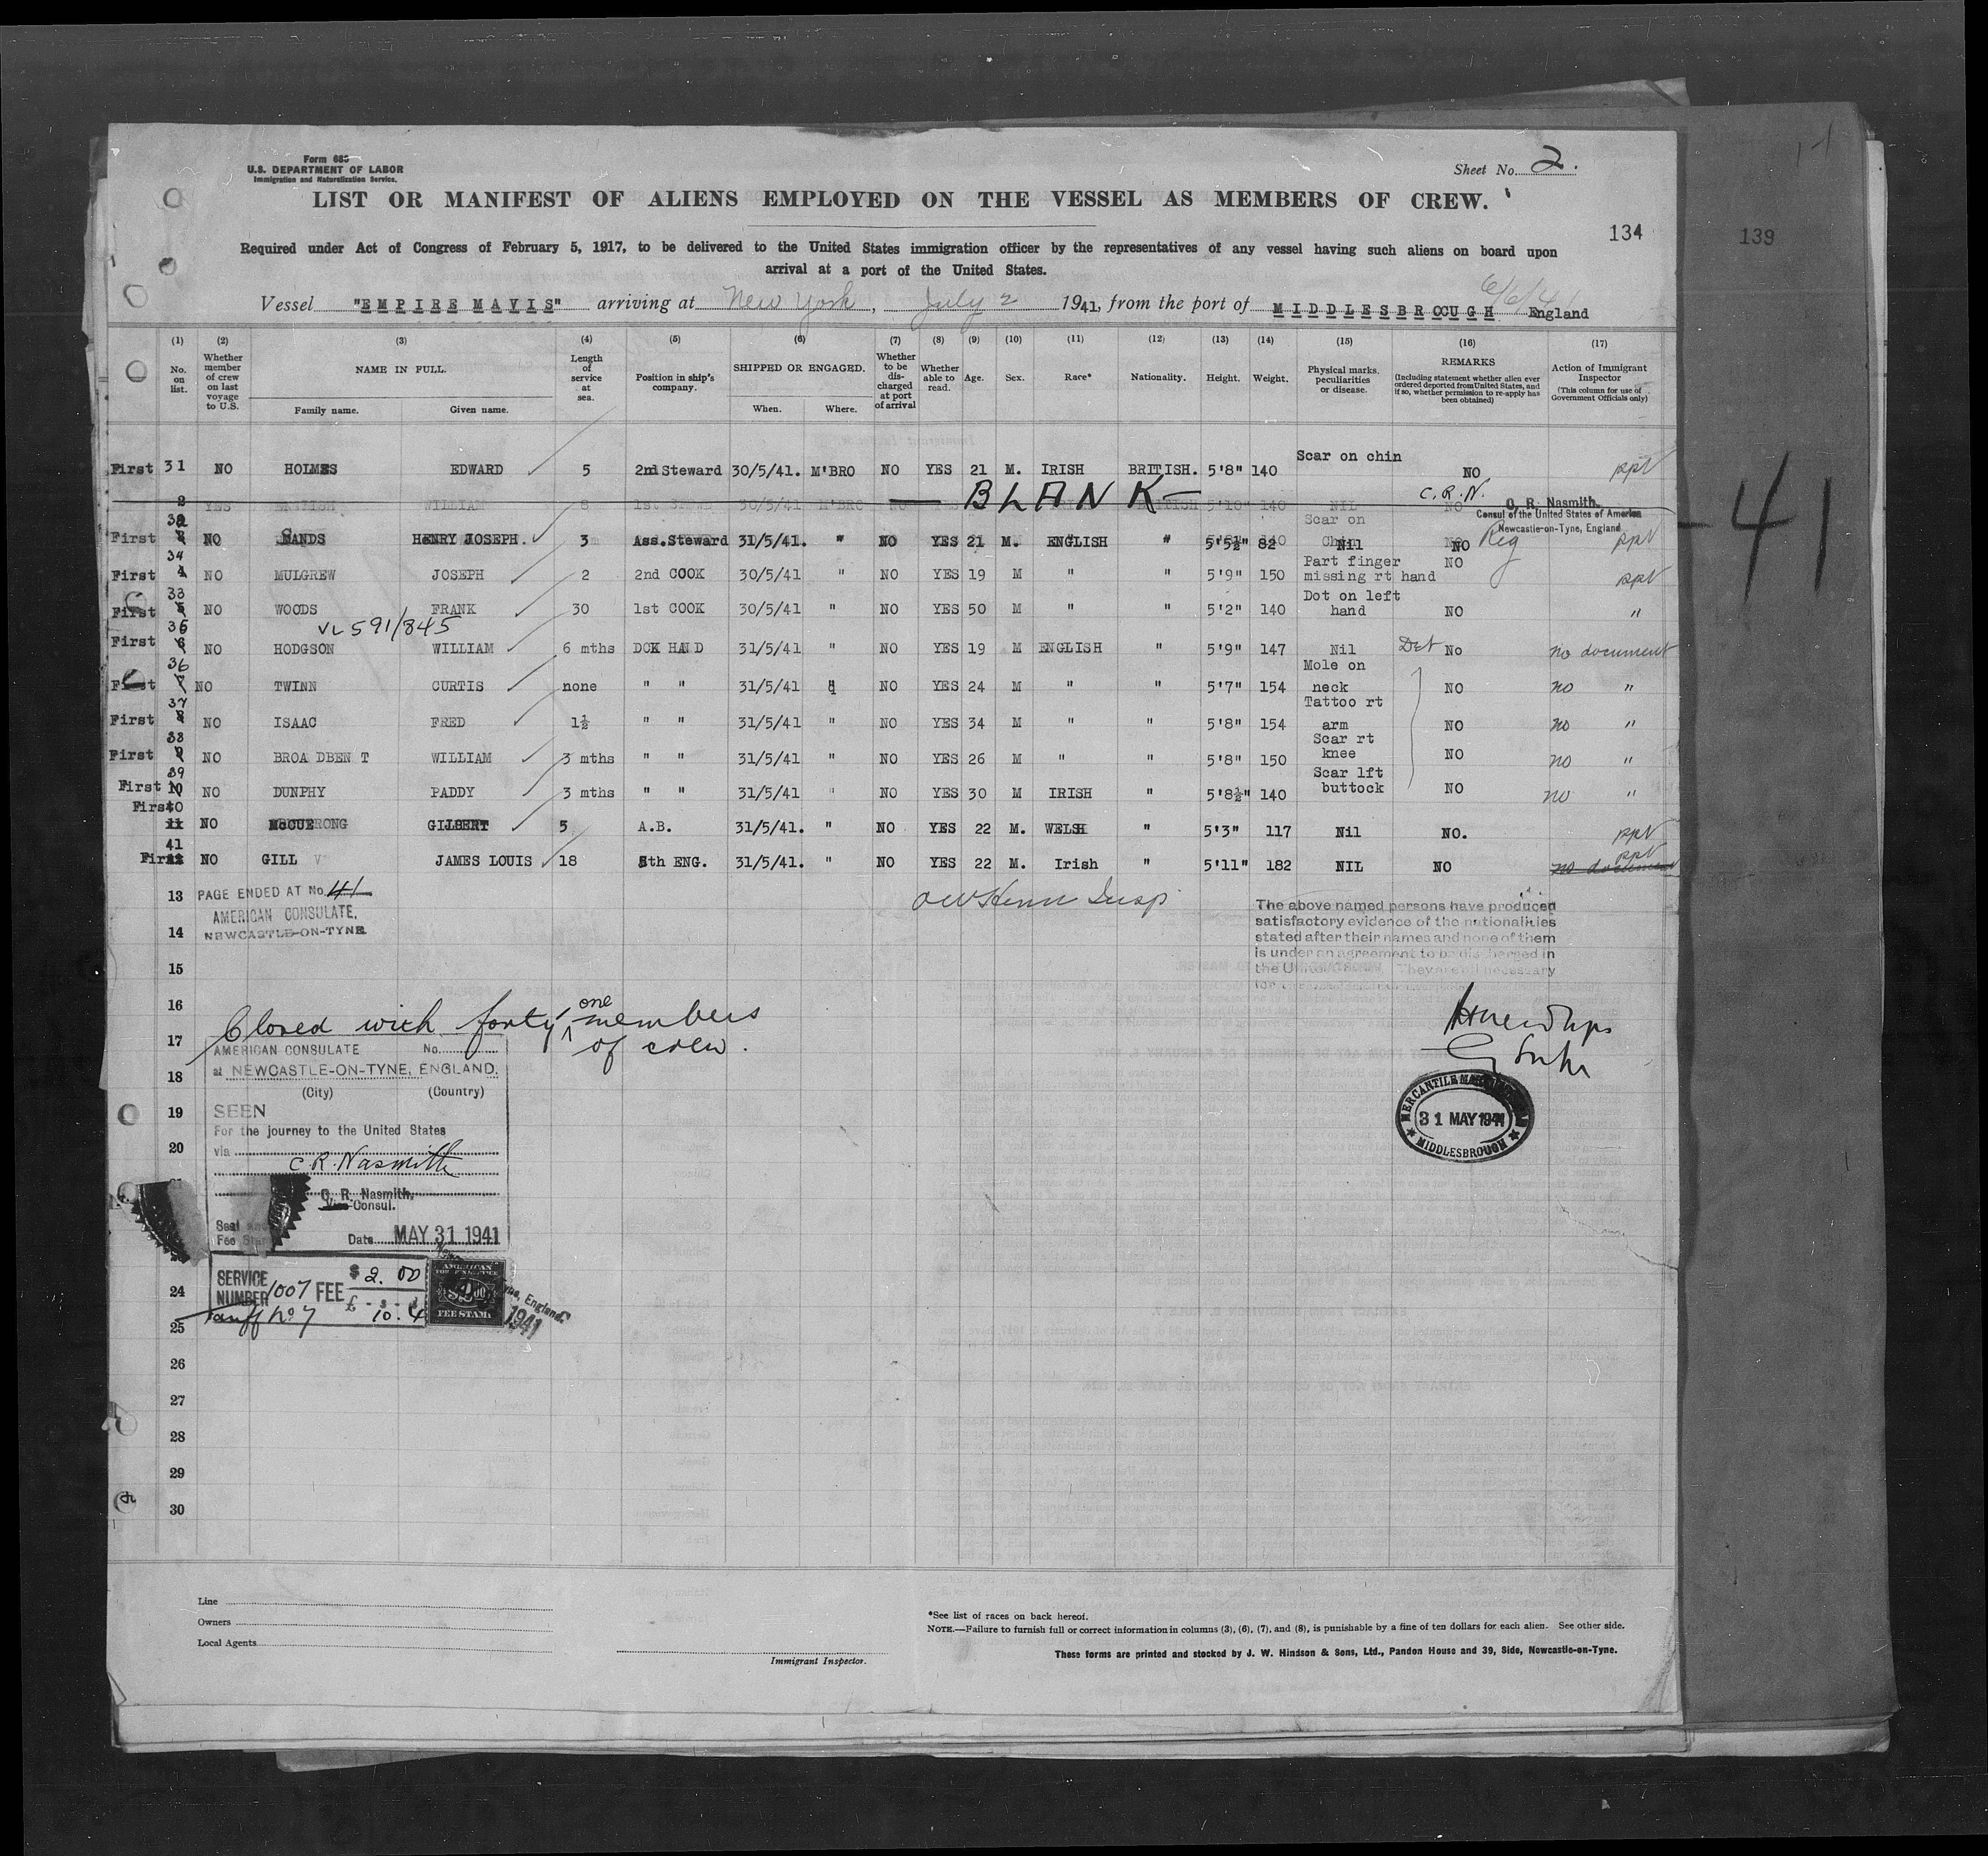 Form 685
U.S. DEPARTMENT OF LABOR
Immigration and Naturalization Service.
Sheet No. 2.
LIST OR MANIFEST OF ALIENS EMPLOYED ON THE VESSEL AS MEMBERS OF CREW.
134
139
Required under Act of Congress of February 5, 1917, to be delivered to the United States immigration officer by the representatives of any vessel having such aliens on board upon
arrival at a port of the United States.
6/6/41
Vessel "EMPIRE MAVIS" arriving at New York, July 2 1941, from the port of MIDDLESBROUGH England
(1) (2) (3) (4) (5) (6) (7) (8) (9) (10) (11) (12) (13) (14) (15) (16) (17)
No. on list.
Whether member of crew on last voyage to U.S.
NAME IN FULL.
Family name. Given name.
Length of service at sea.
Position in ship's company.
SHIPPED OR ENGAGED.
When. Where.
Whether to be discharged at port of arrival
Whether able to read.
Age.
Sex.
Race*
Nationality.
Height.
Weight.
Physical marks, peculiarities or disease.
REMARKS
(Including statement whether alien ever ordered deported from United States, and if so, whether permission to re-apply has been obtained)
Action of Immigrant Inspector
(This column for use of Government Officials only)
First 31 NO HOLMES EDWARD 5 2nd Steward 30/5/41. M'BRO NO YES 21 M. IRISH BRITISH. 5'8" 140 Scar on chin NO ppt
2 — BLANK — C.R.N.
C. R. Nasmith
Consul of the United States of America
Newcastle-on-Tyne, England
First 32 NO SANDS HENRY JOSEPH. 3 Ass. Steward 31/5/41. " NO YES 21 M. ENGLISH " 5'5½" 82 Nil NO Reg ppt
First 34 4 NO MULGREW JOSEPH 2 2nd COOK 30/5/41 " NO YES 19 M " " 5'9" 150 Part finger missing rt hand NO ppt
First 33 5 NO WOODS FRANK 30 1st COOK 30/5/41 " NO YES 50 M " " 5'2" 140 Dot on left hand NO "
VL 591/845
First 35 6 NO HODGSON WILLIAM 6 mths DCK HAND 31/5/41 " NO YES 19 M ENGLISH " 5'9" 147 Nil Det No no document
First 36 7 NO TWINN CURTIS none " " 31/5/41 " NO YES 24 M " " 5'7" 154 Mole on neck NO no "
First 37 8 NO ISAAC FRED 1½ " " 31/5/41 " NO YES 34 M " " 5'8" 154 Tattoo rt arm NO no "
First 38 9 NO BROADBENT WILLIAM 3 mths " " 31/5/41 " NO YES 26 M " " 5'8" 150 Scar rt knee NO no "
First 39 10 NO DUNPHY PADDY 3 mths " " 31/5/41 " NO YES 30 M IRISH " 5'8½" 140 Scar lft buttock NO no "
First 40 11 NO McCUE GILBERT 5 A.B. 31/5/41. " NO YES 22 M. WELSH " 5'3" 117 Nil NO. ppt
First 41 12 NO GILL JAMES LOUIS 18 5th ENG. 31/5/41. " NO YES 22 M. Irish " 5'11" 182 NIL NO ppt no document
13 PAGE ENDED AT No. 41
AMERICAN CONSULATE,
14 NEWCASTLE-ON-TYNE
The above named persons have produced
satisfactory evidence of the nationalities
stated after their names and none of them
is under an agreement to be discharged in
15
16
Closed with forty one members
of crew.
17
AMERICAN CONSULATE No.
at NEWCASTLE-ON-TYNE, ENGLAND.
18
(City) (Country)
19
SEEN
For the journey to the United States
20
via
C.R. Nasmith
C. R. Nasmith,
Vice Consul.
Seal and
Fee Stamp
Date MAY 31 1941
SERVICE NUMBER 1007 FEE $ 2.00
Tariff No 7 £ - s - d 10.4
AMERICAN
$2.00
FEE STAMP
England
1941
MERCANTILE
31 MAY 1941
MIDDLESBROUGH
24
25
26
27
28
29
30
-41
Line
Owners
Local Agents
Immigrant Inspector.
*See list of races on back hereof.
NOTE.—Failure to furnish full or correct information in columns (3), (6), (7), and (8), is punishable by a fine of ten dollars for each alien. See other side.
These forms are printed and stocked by J. W. Hindson & Sons, Ltd., Pandon House and 39, Side, Newcastle-on-Tyne.